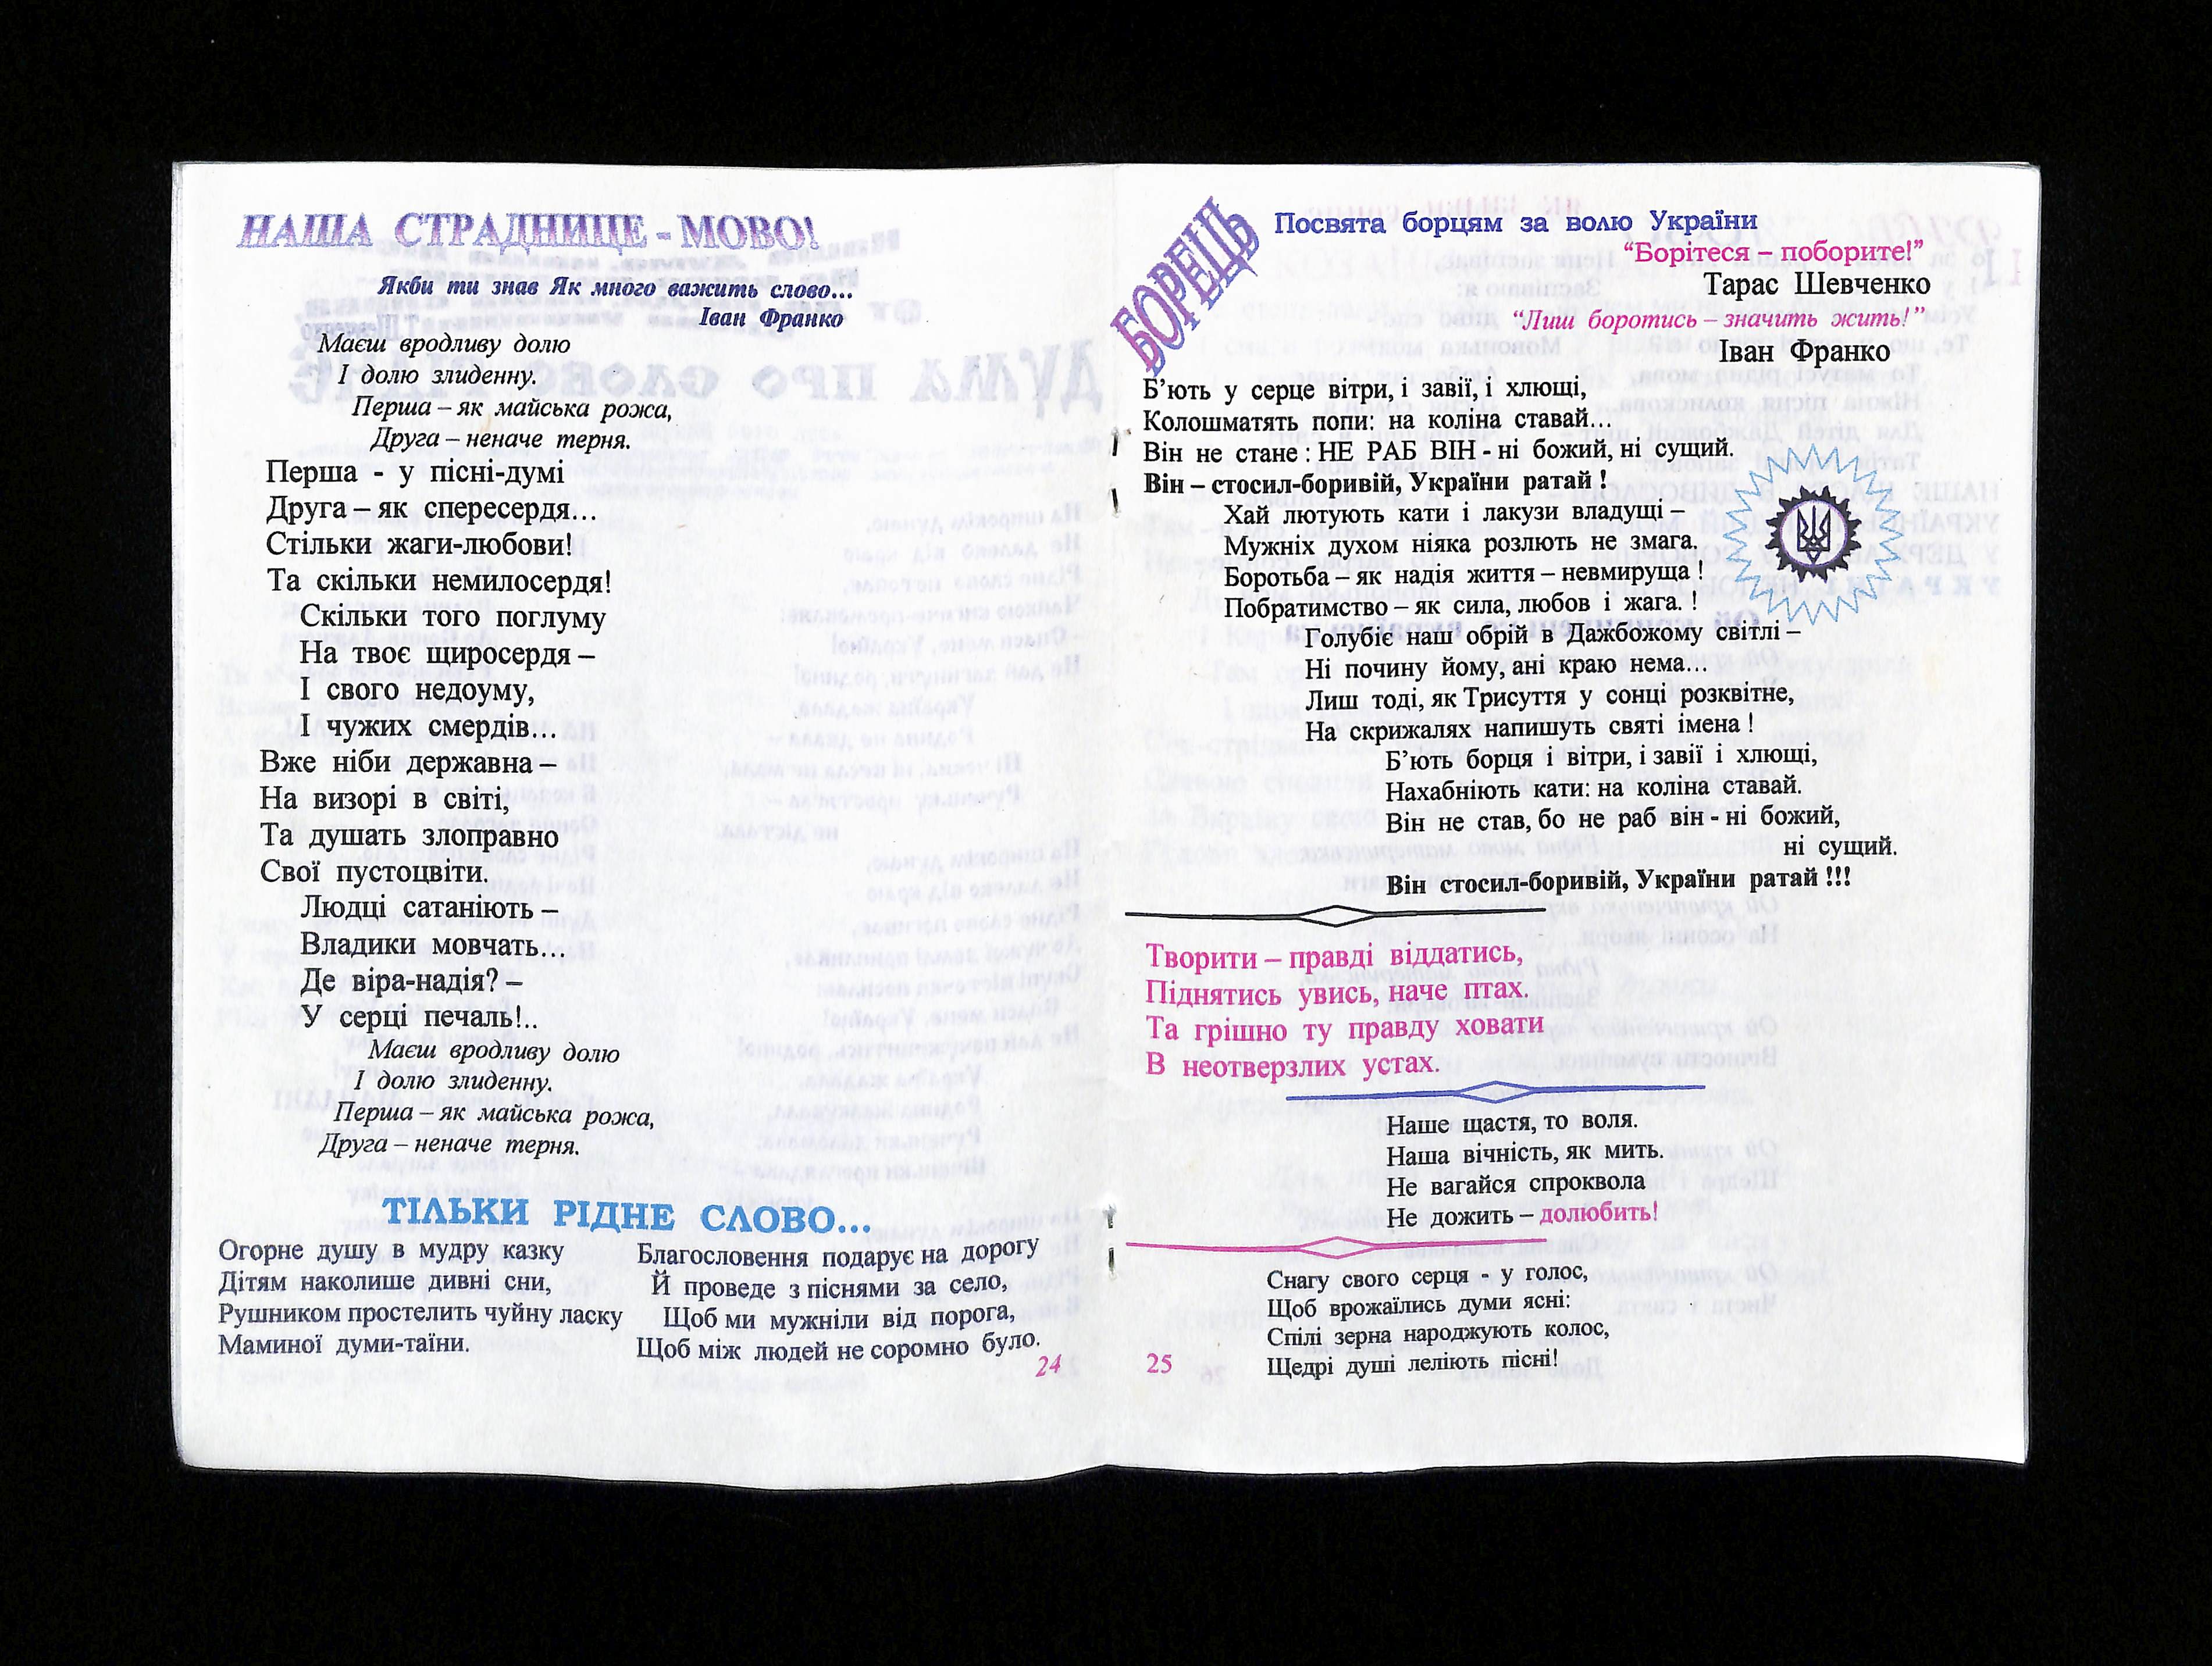 НАША СТРАДНИЦЕ - МОВО!
Якби ти знав Як много важить слово...
Іван Франко
Маєш вродливу долю
І долю злиденну.
Перша – як майська рожа,
Друга – неначе терня.
Перша - у пісні-думі
Друга – як спересердя...
Стільки жаги-любови!
Та скільки немилосердя!
Скільки того поглуму
На твоє щиросердя –
І свого недоуму,
І чужих смердів...
Вже ніби державна –
На визорі в світі,
Та душать злоправно
Свої пустоцвіти.
Людці сатаніють –
Владики мовчать...
Де віра-надія? –
У серці печаль!..
Маєш вродливу долю
І долю злиденну.
Перша – як майська рожа,
Друга – неначе терня.
ТІЛЬКИ РІДНЕ СЛОВО...
Огорне душу в мудру казку
Дітям наколише дивні сни,
Рушником простелить чуйну ласку
Маминої думи-таїни.
Благословення подарує на дорогу
Й проведе з піснями за село,
Щоб ми мужніли від порога,
Щоб між людей не соромно було.
24
БОРЕЦЬ
Посвята борцям за волю України
“Борітеся – поборите!”
Тарас Шевченко
“Лиш боротись – значить жить!”
Іван Франко
Б’ють у серце вітри, і завії, і хлющі,
Колошматять попи: на коліна ставай...
Він не стане : НЕ РАБ ВІН - ні божий, ні сущий.
Він – стосил-боривій, України ратай !
Хай лютують кати і лакузи владущі –
Мужніх духом ніяка розлють не змага,
Боротьба – як надія життя – невмируща !
Побратимство – як сила, любов і жага. !
Голубіє наш обрій в Дажбожому світлі –
Ні почину йому, ані краю нема...
Лиш тоді, як Трисуття у сонці розквітне,
На скрижалях напишуть святі імена !
Б’ють борця і вітри, і завії і хлющі,
Нахабніють кати: на коліна ставай.
Він не став, бо не раб він - ні божий,
ні сущий.
Він стосил-боривій, України ратай !!!
Творити – правді віддатись,
Піднятись увись, наче птах.
Та грішно ту правду ховати
В неотверзлих устах.
Наше щастя, то воля.
Наша вічність, як мить.
Не вагайся спроквола
Не дожить – долюбить!
Снагу свого серця - у голос,
Щоб врожаїлись думи ясні:
Спілі зерна народжують колос,
Щедрі душі леліють пісні!
25